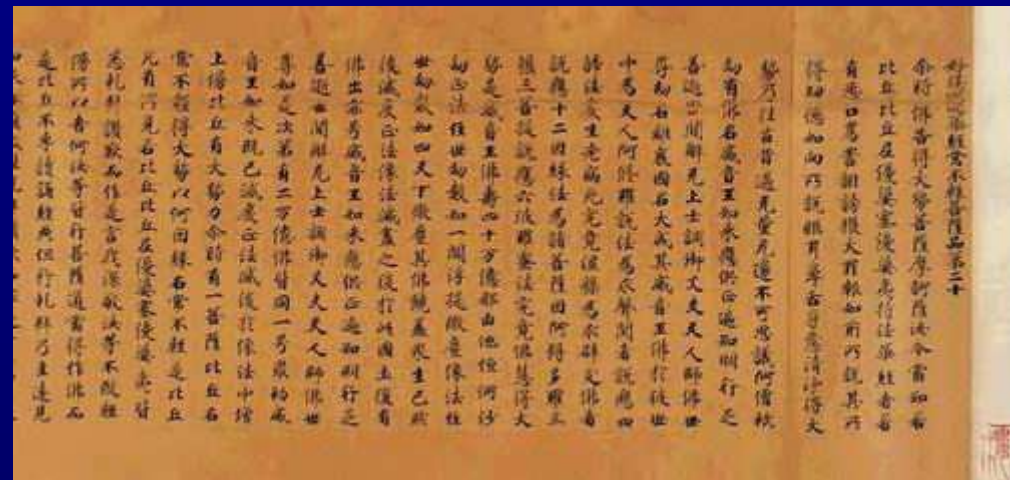 妙法蓮華經常不輕菩薩品第二十
尒時佛告得大勢菩薩摩訶薩汝今當知若
比丘比丘尼優婆塞優婆夷持法華經者若
有惡口罵詈誹謗獲大罪報如前所說其所
得功德如向所說眼耳鼻舌身意清淨得大
勢乃往古昔過无量无邊不可思議阿僧祇
劫有佛名威音王如來應供正遍知明行足
善逝世間解无上士調御丈夫天人師佛世
尊劫名離衰國名大成其威音王佛於彼世
中為天人阿修羅說法為求聲聞者說應四
諦法度生老病死究竟涅槃為求辟支佛者
說應十二因緣法為諸菩薩因阿耨多羅三
藐三菩提說應六波羅蜜法究竟佛慧得大
勢是威音王佛壽四十万億那由他恒河沙
劫正法住世劫數如一閻浮提微塵像法住
世劫數如四天下微塵其佛饒益眾生已然
後滅度正法像法滅盡之後於此國土復有
佛出亦号威音王如來應供正遍知明行足
善逝世間解无上士調御丈夫天人師佛世
尊如是次第有二万億佛皆同一号最初威
音王如來既已滅度正法滅後於像法中增
上慢比丘有大勢力尒時有一菩薩比丘名
常不輕得大勢以何因緣名常不輕是比丘
凡有所見若比丘比丘尼優婆塞優婆夷皆
悉礼拜讚歎而作是言我深敬汝等不敢輕
慢所以者何汝等皆行菩薩道當得作佛而
是比丘不專讀誦經典但行礼拜乃至遠見